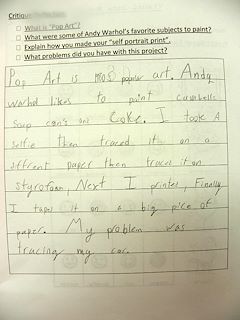 Critique
□ What is "Pop Art"?
□ What were some of Andy Warhol's favorite subjects to paint?
□ Explain how you made your "self portrait print".
□ What problems did you have with this project?
Pop Art is mos popular art. Andy
Warhol likes to paint
Soup can's Coke. I took A
selfie then traced it on a
paper then traced it on
styrofoam, Next I printed, Finally
I taped it on a big pice of
paper. My problem was
tracing my